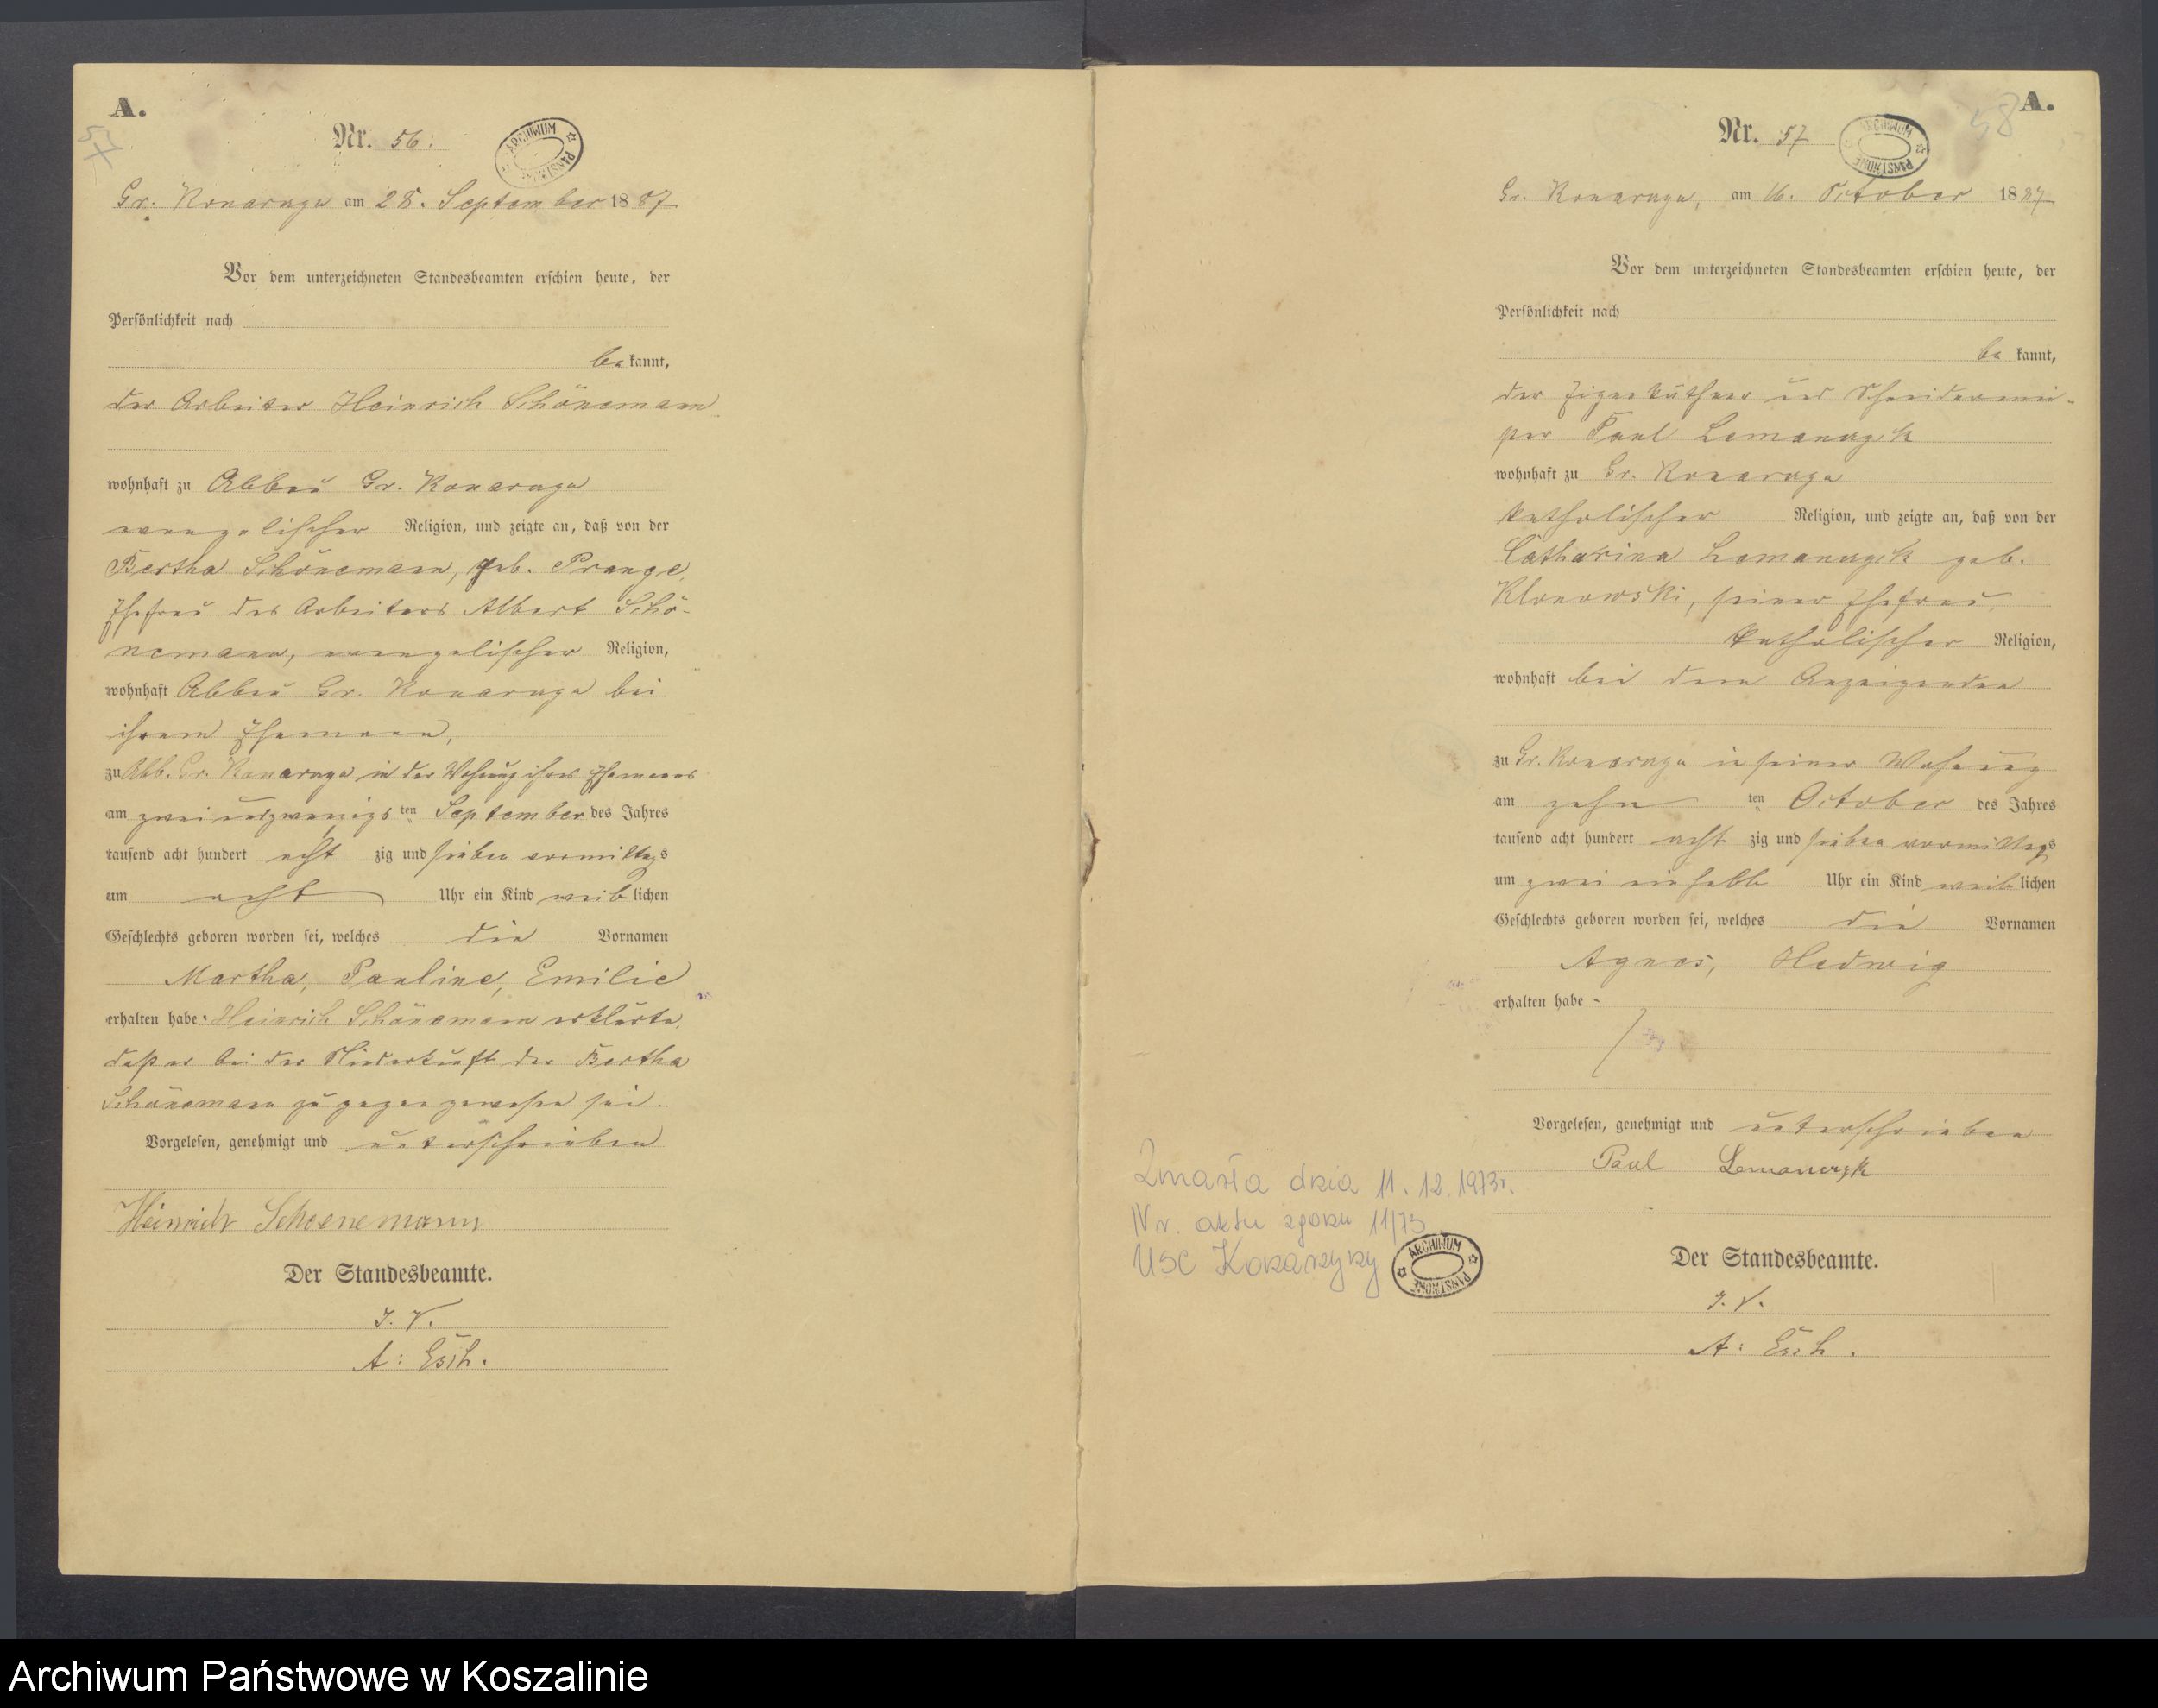 A.
57
Nr. 56.
ARCHIWUM PAŃSTWOWE
Gr. Konarczyn am 28. September 1887
Vor dem unterzeichneten Standesbeamten erschien heute, der
Persönlichkeit nach
be kannt,
der Arbeiter Heinrich Schönemann
wohnhaft zu Abbau Gr. Konarczyn
evangelischer Religion, und zeigte an, daß von der
Bertha Schönemann, geb. Prange,
Ehefrau des Arbeiters Albert Schö-
nemann, evangelischer Religion,
wohnhaft Abbau Gr. Konarczyn bei
ihrem Ehemann,
zu Abb. Gr. Konarczyn in der Wohnung ihres Ehemanns
am zwei und zwanzigs ten September des Jahres
tausend acht hundert acht zig und sieben vormittags
um acht Uhr ein Kind weib lichen
Geschlechts geboren worden sei, welches die Vornamen
Martha, Pauline, Emilie
erhalten habe. Heinrich Schönemann erklärte,
daß er bei der Niederkunft der Bertha
Schönemann zugegen gewesen sei.
Vorgelesen, genehmigt und unterschrieben
Heinrich Schoenemann
Der Standesbeamte.
I. V.
A: Esch.
A.
58
Nr. 57
ARCHIWUM PAŃSTWOWE
Gr. Konarczyn, am 16. October 1887
Vor dem unterzeichneten Standesbeamten erschien heute, der
Persönlichkeit nach
be kannt,
der Eigenkäthner und Schneidermei-
ster Paul Lemanczyk
wohnhaft zu Gr. Konarczyn
katholischer Religion, und zeigte an, daß von der
Catharina Lemanczyk geb.
Klonowski, seiner Ehefrau,
katholischer Religion,
wohnhaft bei dem Anzeigenden
zu Gr. Konarczyn in seiner Wohnung
am zehn ten October des Jahres
tausend acht hundert acht zig und sieben vormittags
um zwei einhalb Uhr ein Kind weib lichen
Geschlechts geboren worden sei, welches die Vornamen
Agnes, Hedwig
erhalten habe -
Vorgelesen, genehmigt und unterschrieben
Paul Lemanczyk
Der Standesbeamte.
I. V.
A: Esch.
Zmarła dnia 11. 12. 1973r.
Nr. aktu zgonu 11/73
USC Koczała
ARCHIWUM PAŃSTWOWE
Archiwum Państwowe w Koszalinie